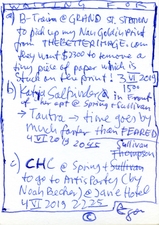 a) B-Train @ GRAND ST. STATION
to pick up my Nan Goldin Print
from THEBETTERIMAGE.com
they want $2300 to remove a
tiny piece of paper which is
stuck on the print! 3 VI 2019
b) Katya in front
of apt @ Spring + Sullivan
→ Tantra → time goes by
much faster than FEARED
4 VI 2019 2045
Sullivan
Thompson
c) CHC @ Spring + Sullivan
to go to Artis Party (by
Noah Becher) @ Jane Hotel
4 VI 2019 2225